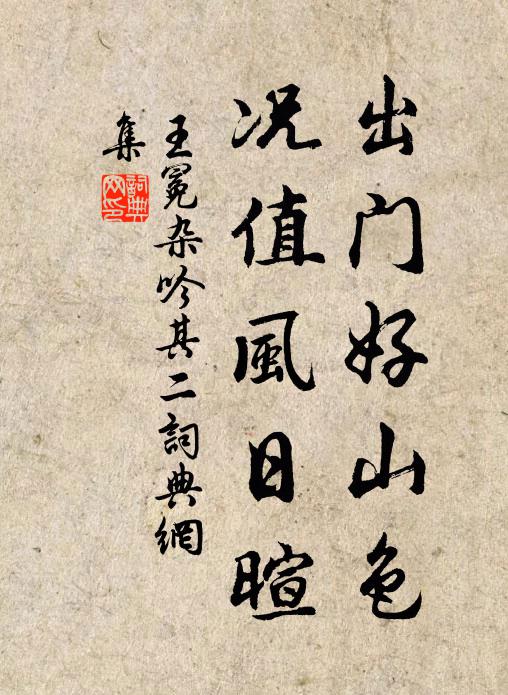 出门好山色
况值風日暄
王冕杂吟其二詞典網
集
詞典
网印